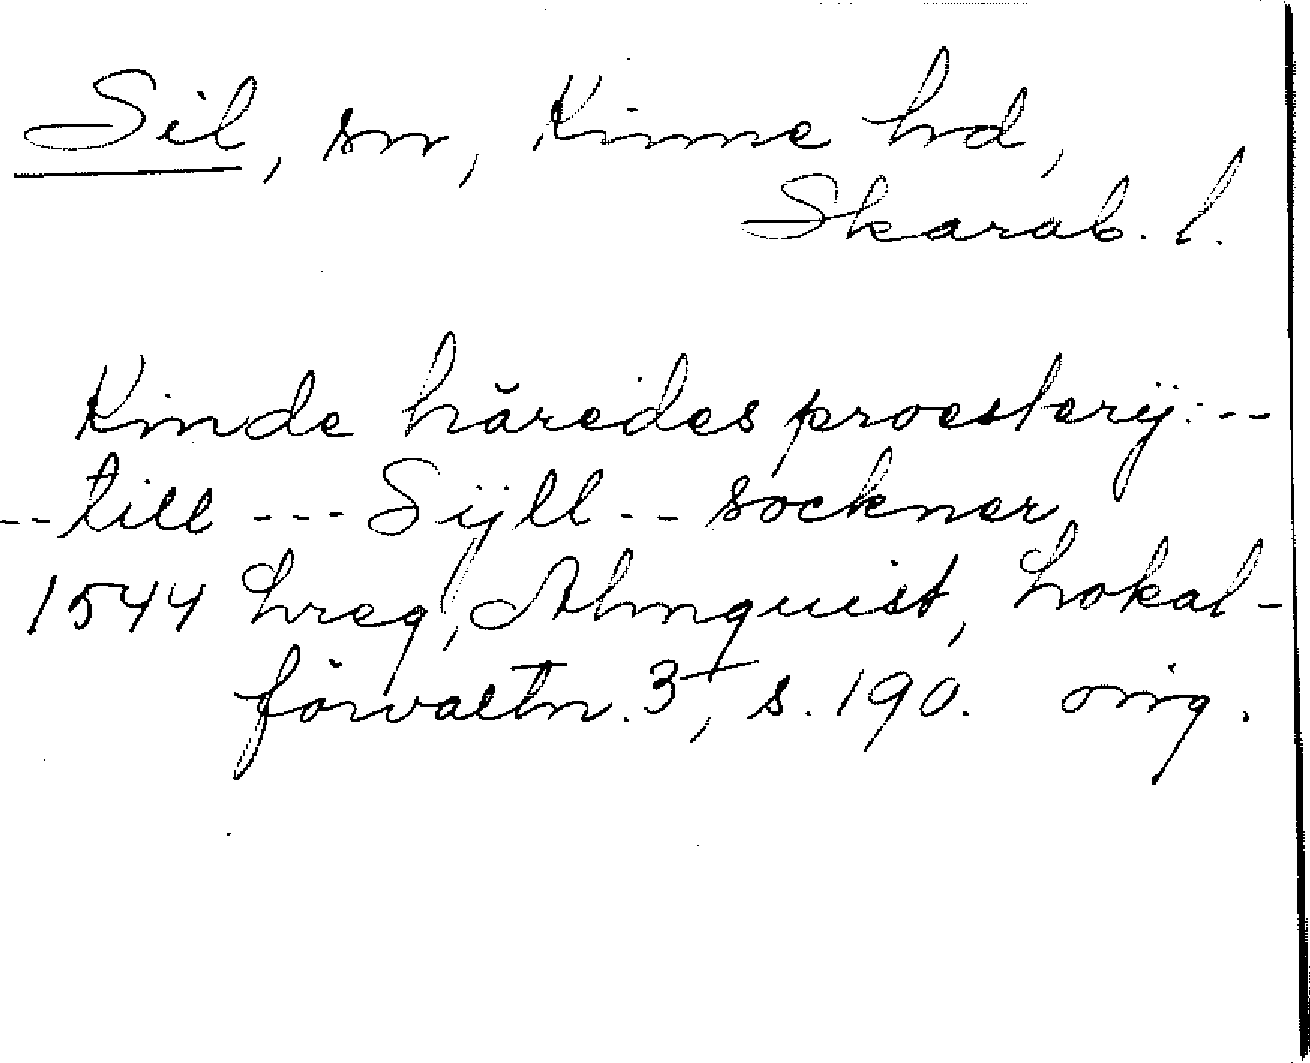 Sil, sn, Kinne hd,
Skarab. l.
Kinde häredes proesterij: --
-- till --- Sÿll -- socknar
1544 hreg, Almquist, Lokal-
förvaltn. 3, s. 190. orig.